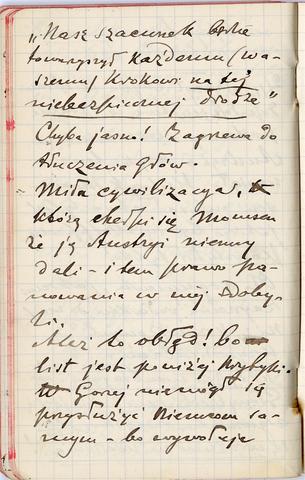 „Nasz szacunek będzie
towarzyszył każdemu (wa-
szemu) krokowi na tej
niebezpiecznej drodze"
Chyba jasno! Zagrzewa do
tłuczenia głów.
Miła cywilizacya,
którą chełpi się Momsen
że ją Austryi niemcy
dali – i tem prawo pa-
nowania w niej zdoby-
li.
Ależ to obłęd! bo
list jest poniżej krytyki.
Gorzej nie mógł się
przysłużyć Niemcom sa-
mym – bo wywołuje